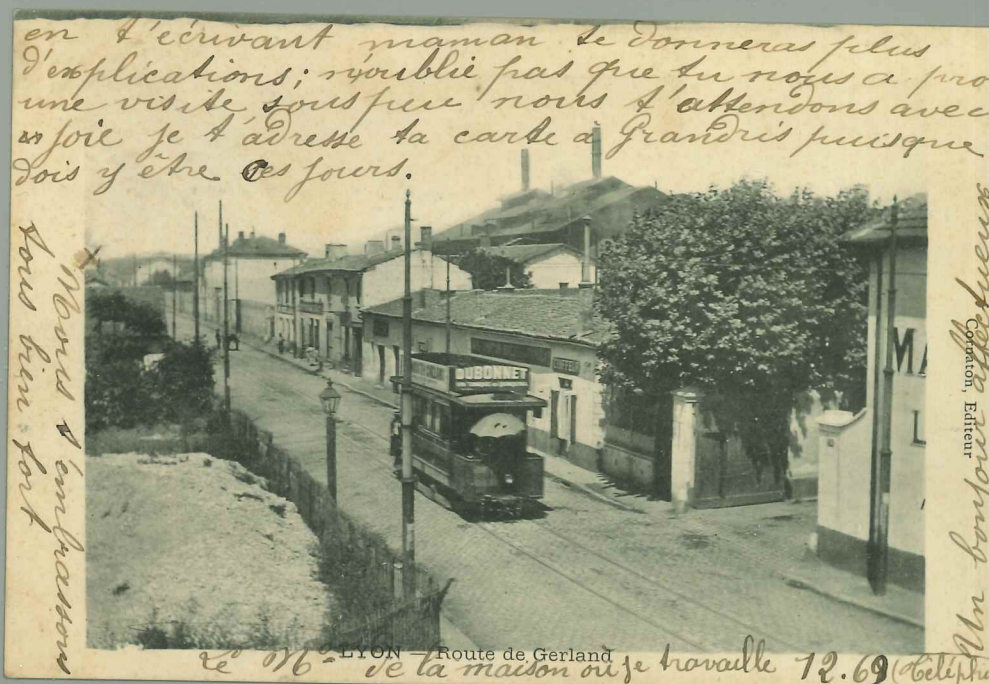 en t'écrivant maman te donneras plus
d'explications; n'oublie pas que tu nous a pro
une visite sous peu nous t'attendons avec
joie je t'adresse ta carte à Grandris puisque
dois y être ces jours.
Nous t'embrassons
tous bien fort
DUBONNET
COIFFEUR
MA
L
Corbaton, Editeur
Un bonjour affectueux
LYON — Route de Gerland
Le No de la maison où je travaille 12.69 (Télépho